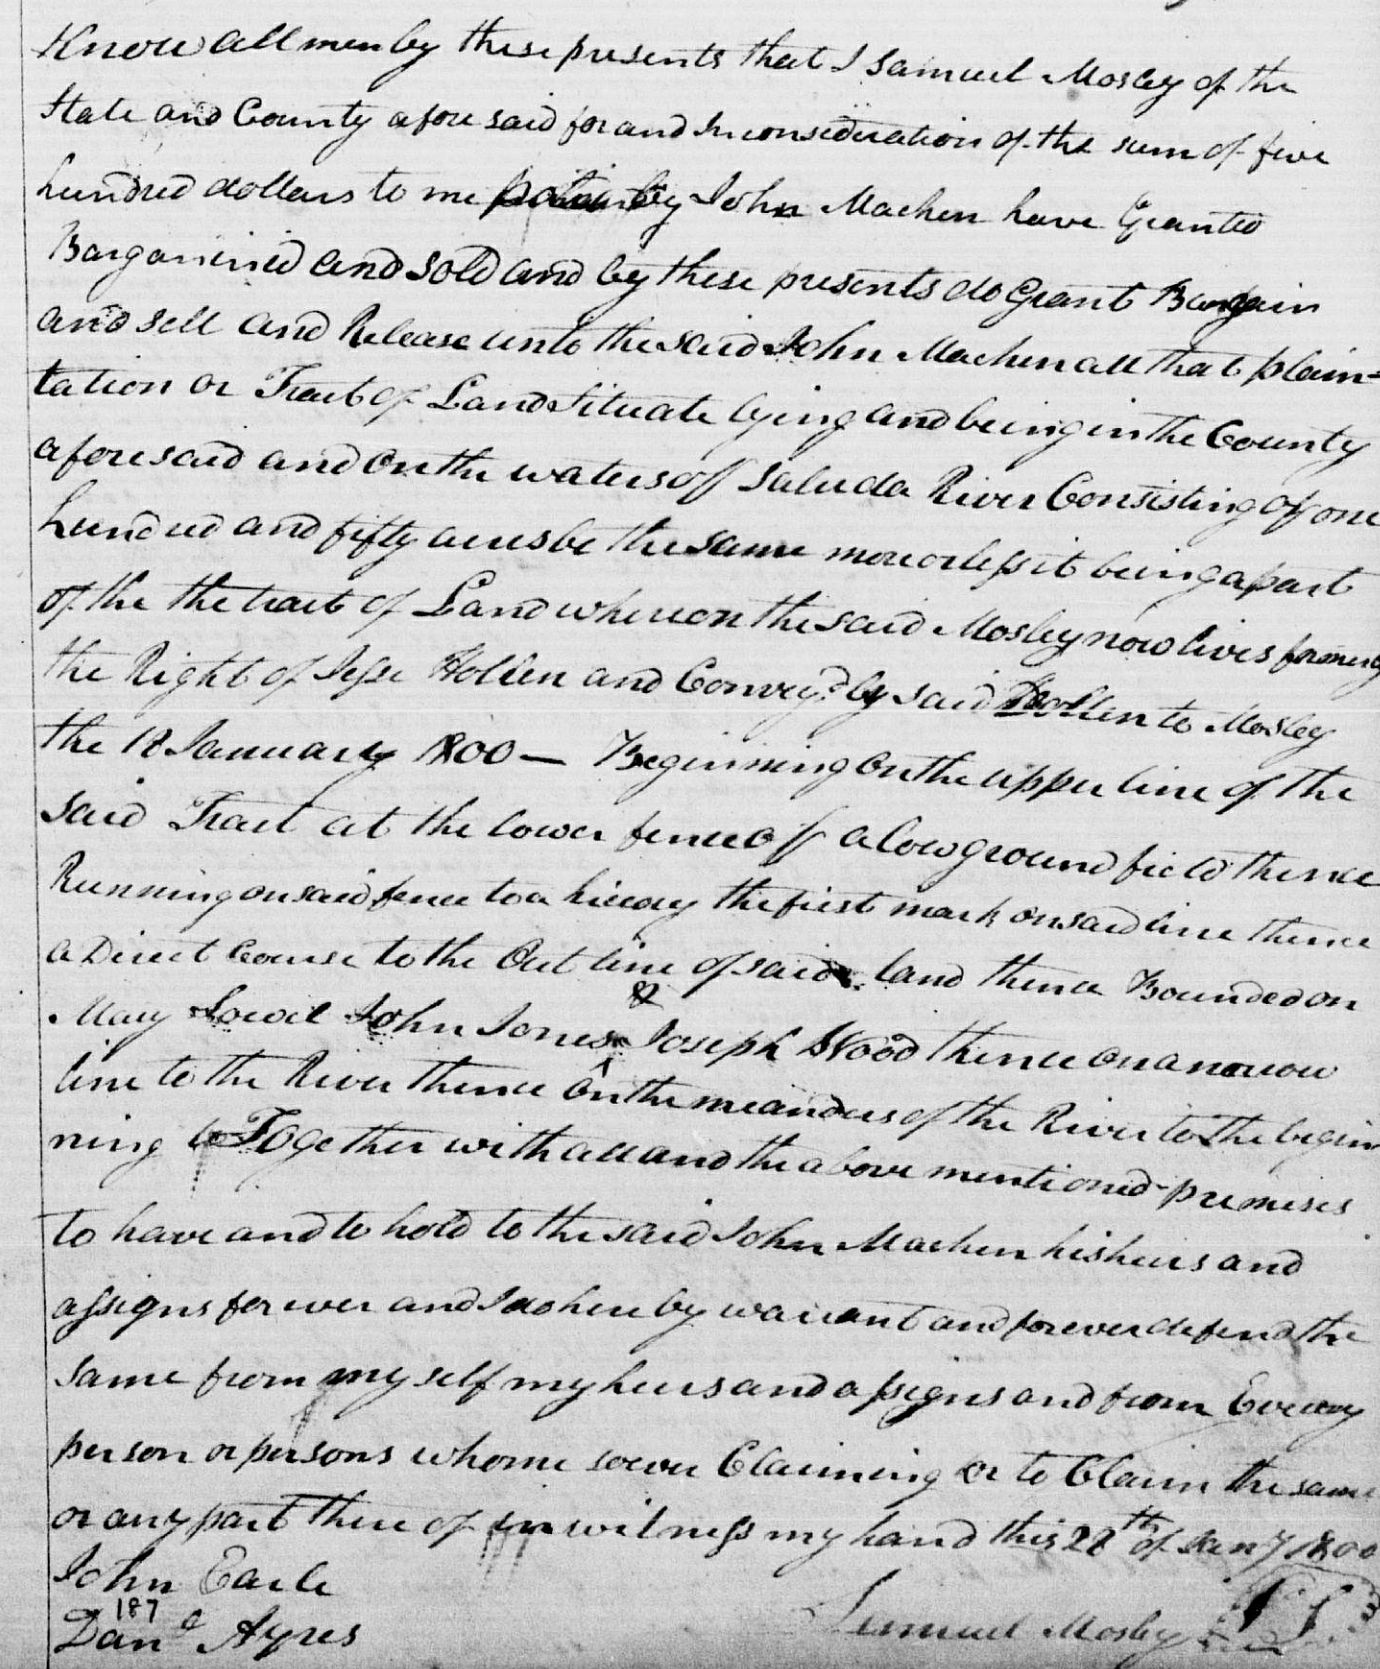 Know all men by these presents that I Samuel Mosley of the
State and County afore said for and In consideration of the sum of five
hundred dollars to me by John Machen have Granted
Barganined and Sold and by these presents do Grant Bargain
and sell and Release unto the said John Machen all that plain=
tation or Tract of Land Situate lying and being in the County
aforesaid and on the waters off Saluda River Consisting of one
hundred and fifty acres be the same more or less it being a part
of the the tract of Land whereon the said Mosley now lives formerly
the Right of Jesse Hollen and Convey'd by said Hollen to Mosley
the 18 January 1800 — Beginning on the upper line of the
said Tract at the lower fence off a low ground field thence
Running on said fence to a hicory the first mark on said line thence
a Direct Course to the Out line of said land thence Bounded on
May John Jones & Joseph Wood thence on a narrow
line to the River thence on the meanders of the River to the begin
ning Together with all and the above mentioned premises
to have and to hold to the said John Machen his heirs and
assigns for ever and I do here by warrant and forever defend the
same from my self my heirs and assigns and from Every
person or persons whome soever Claiming or to Claim the same
or any part there of in witness my hand this 28th of Jany 1800
John Earle
187
Danl Ayres
Samuel Mosley LS